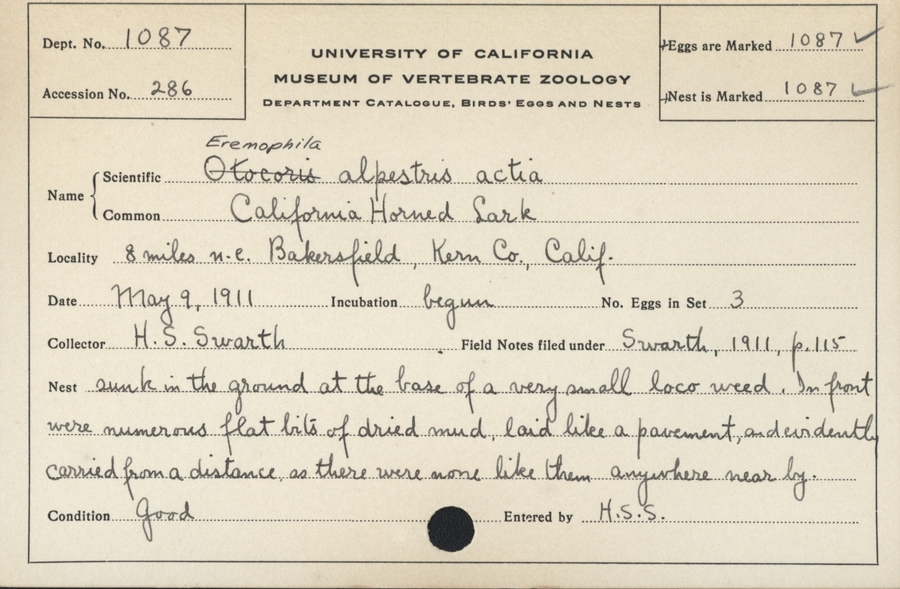 Dept. No. 1087
Accession No. 286
UNIVERSITY OF CALIFORNIA
MUSEUM OF VERTEBRATE ZOOLOGY
DEPARTMENT CATALOGUE, BIRDS' EGGS AND NESTS
Eggs are Marked 1087 ✓
Nest is Marked 1087 ✓
Eremophila
Name { Scientific Otocoris alpestris actia
Common California Horned Lark
Locality 8 miles n.e. Bakersfield, Kern Co., Calif.
Date May 9, 1911 Incubation begun No. Eggs in Set 3
Collector H. S. Swarth Field Notes filed under Swarth, 1911, p. 115
Nest sunk in the ground at the base of a very small loco weed. In front
were numerous flat bits of dried mud, laid like a pavement, and evidently
carried from a distance, as there were none like them anywhere near by.
Condition Good Entered by H.S.S.